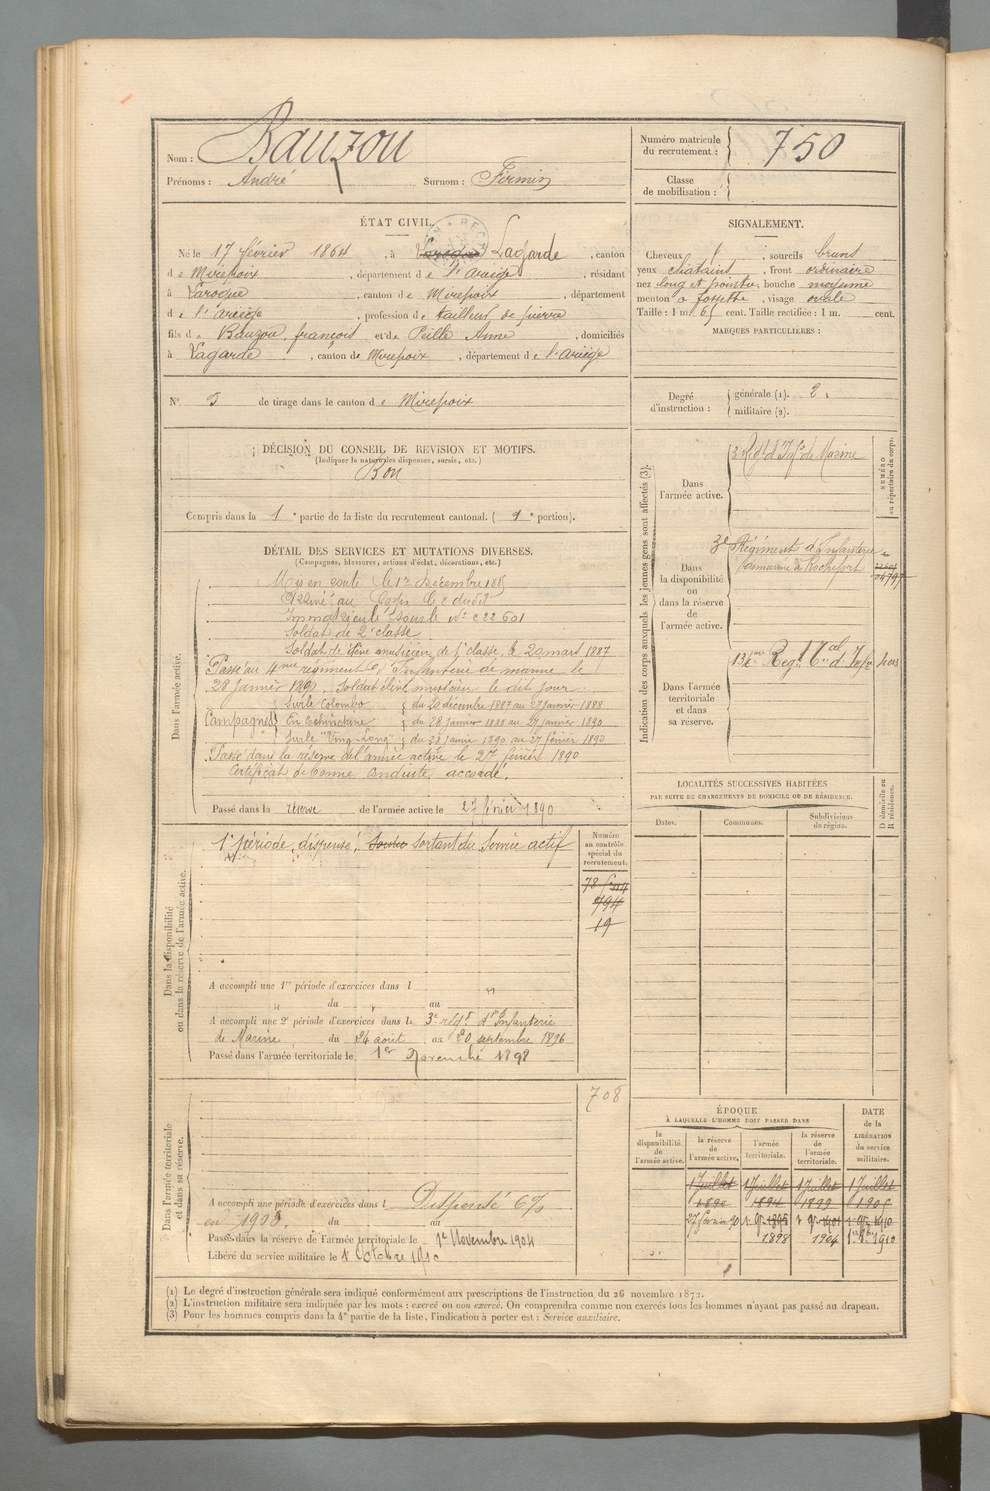 Nom : Bauzou
Prénoms : André Surnom : Firmin
Numéro matricule du recrutement : 750
Classe de mobilisation :
ÉTAT CIVIL.
Né le 17 février 1864, à Laroque Lagarde, canton
de Mirepoix, département de l'Ariège, résidant
à Laroque, canton de Mirepoix, département
de l'Ariège, profession de tailleur de pierre
fils de Bauzou, françois et de Peille Anne, domiciliés
à Lagarde, canton de Mirepoix, département de l'Ariège
N° 5 de tirage dans le canton de Mirepoix
DÉCISION DU CONSEIL DE REVISION ET MOTIFS.
(Indiquer la nature des dispenses, sursis, etc.)
Bon
Compris dans la 1e partie de la liste du recrutement cantonal. (1e portion).
SIGNALEMENT.
Cheveux, sourcils bruns
yeux chatains, front ordinaire
nez long et pointu, bouche moyenne
menton à fossette, visage ovale
Taille : 1 m. 65 cent. Taille rectifiée : 1 m. cent.
MARQUES PARTICULIÈRES :
Degré d'instruction : générale (1). 2
militaire (2).
DÉTAIL DES SERVICES ET MUTATIONS DIVERSES.
(Campagnes, blessures, actions d'éclat, décorations, etc.)
Dans l'armée active.
Mis en route le 1er Décembre 1885
au Corps le dudit
Immatriculé sous le N° 22601
Soldat de 2e classe
Soldat élève musicien de 1e classe, le 20 mars 1887
Passé au 4me régiment d'Infanterie de marine le
28 Janvier 1890. Soldat élève musicien le dit jour
Campagnes
Sur le Colombo du 20 décembre 1887 au 27 janvier 1888
En Cochinchine du 28 janvier 1888 au 27 janvier 1890
Sur le "Ving-Long" du 28 janvier 1890 au 27 février 1890
Passé dans la réserve de l'armée active le 27 février 1890
Certificat de bonne conduite accordé.
Passé dans la réserve de l'armée active le 27 février 1890
Dans la disponibilité ou dans la réserve de l'armée active.
1e période, dispensé. sortant du service actif
Numéro au contrôle spécial du recrutement.
494
19
A accompli une 1re période d'exercices dans l
du au
A accompli une 2e période d'exercices dans le 3e régt d'Infanterie
de Marine du 24 août au 20 septembre 1896
Passé dans l'armée territoriale le 1er Novembre 1898
Dans l'armée territoriale et dans sa réserve.
708
A accompli une période d'exercices dans l Dispensé 6%
en 1905. du au
Passé dans la réserve de l'armée territoriale le 1er Novembre 1904
Libéré du service militaire le 1 Octobre 1910
Indication des corps auxquels les jeunes gens sont affectés (3).
NUMÉRO au répertoire du corps.
Dans l'armée active.
3 Régt d'Infie de Marine
Dans la disponibilité ou dans la réserve de l'armée active.
3e Régiment d'Infanterie
de marine à Rochefort
Dans l'armée territoriale et dans sa réserve.
Régt d'Infie
LOCALITÉS SUCCESSIVES HABITÉES
PAR SUITE DE CHANGEMENTS DE DOMICILE OU DE RÉSIDENCE.
Dates. Communes. Subdivisions de région. D domicile ou R résidence.
ÉPOQUE
À LAQUELLE L'HOMME DOIT PASSER DANS
DATE de la LIBÉRATION du service militaire.
la disponibilité de l'armée active. la réserve de l'armée active. l'armée territoriale. la réserve de l'armée territoriale.
1 Juillet 1 Juillet 1 Juillet 1 Juillet
1890 1894 1899 1905
27 février 90 1895 1901 1910
1898 1904 1910
(1) Le degré d'instruction générale sera indiqué conformément aux prescriptions de l'instruction du 26 novembre 1872.
(2) L'instruction militaire sera indiquée par les mots : exercé ou non exercé. On comprendra comme non exercés tous les hommes n'ayant pas passé au drapeau.
(3) Pour les hommes compris dans la 4e partie de la liste, l'indication à porter est : Service auxiliaire.